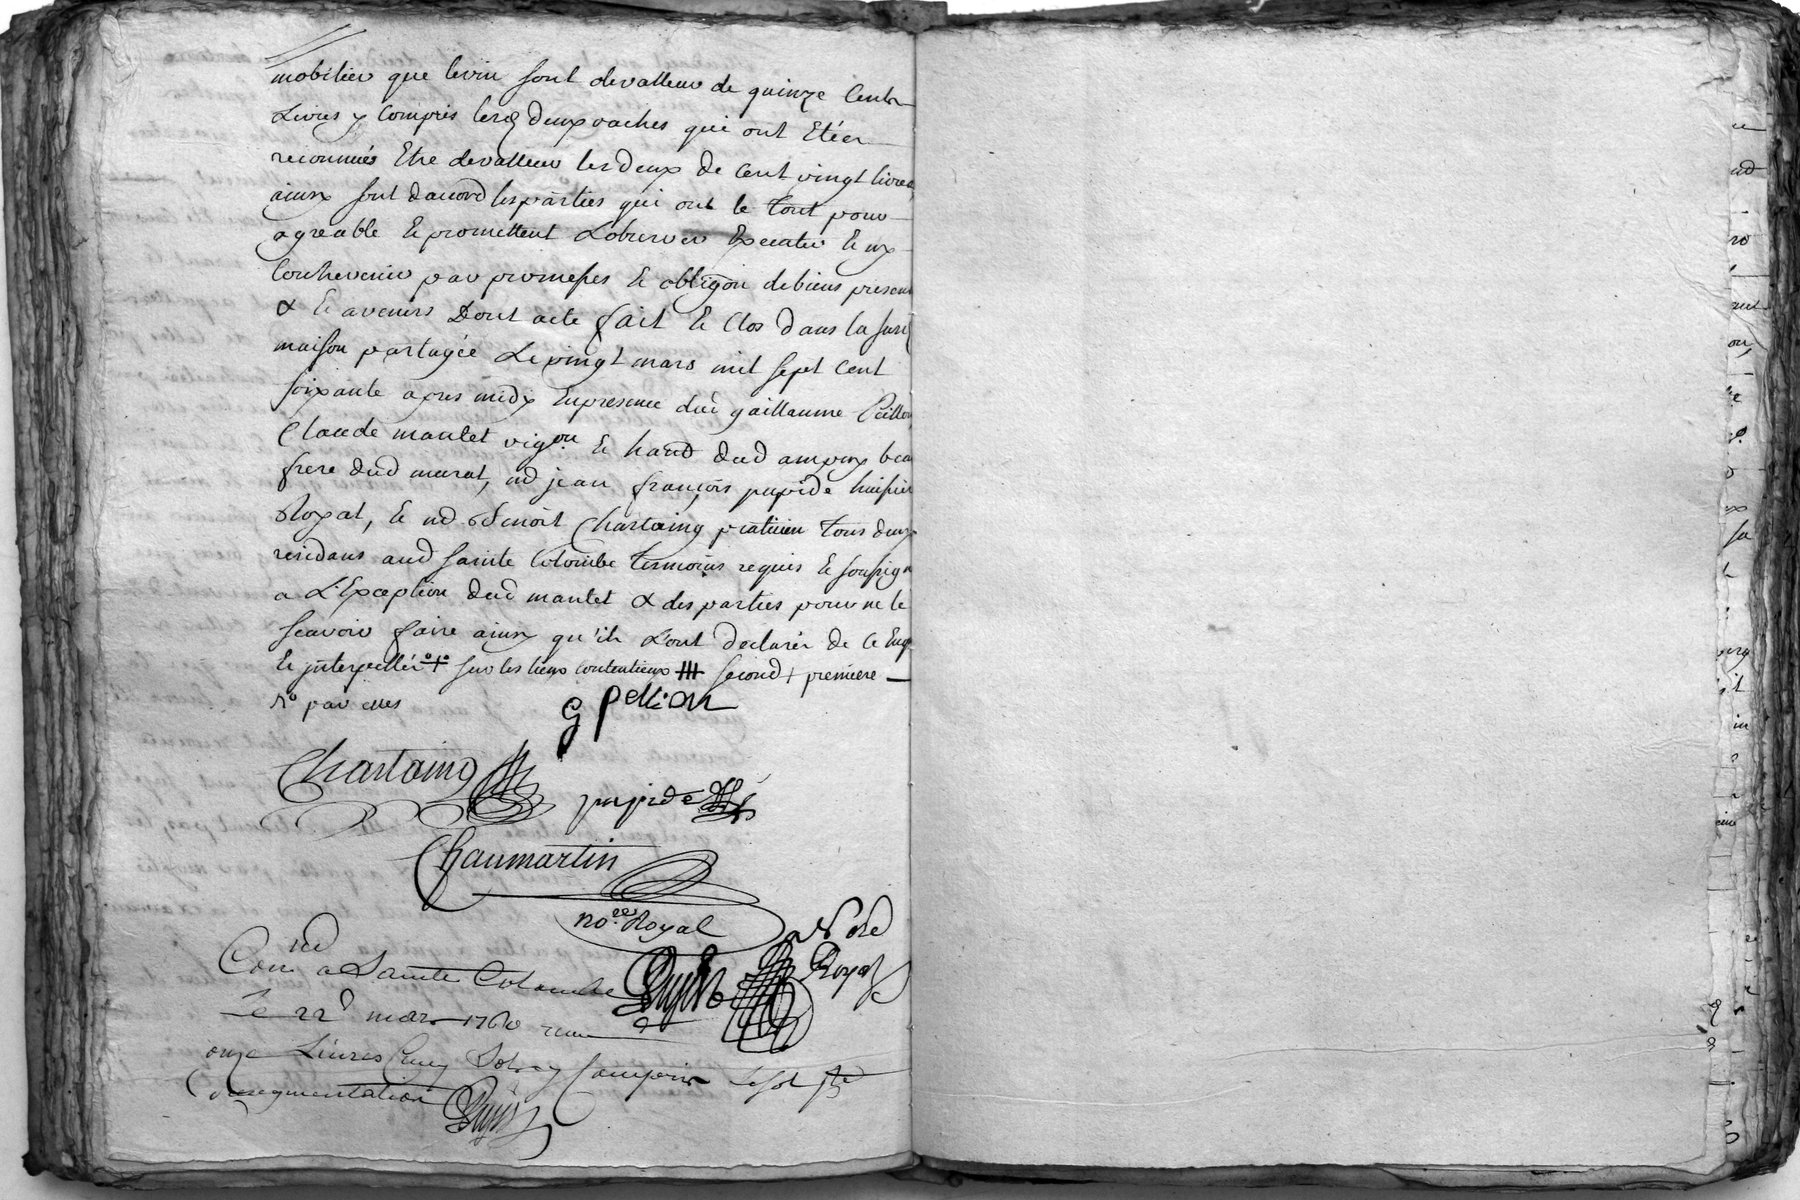 mobilier que levin sont devalleur de quinze Cents
Livres y Compris lesd deux vaches qui ont Etéer
reconnués Etre devalleur lesdeux de Cent vingt livres
ainsy sont daccord lesparties qui ont le tout pour
agreable Et promettent Lobserver Executer Et ny
Contrevenir par promesses Et obligôn debiens presens
& Et avenirs Dont acte fait Et Clos dans la susd
maison partagée Le vingt mars mil sept Cent
soixante apres midy Enpresence dud guillaume
Claude mantet vigon Et dud beau
frere dud murat, md jean françois pupide huissier
Royal, Et md Benoit Chartaing praticien tous deux
residans aud sainte Colombe temoins requis Et soussignés
a L'Exception dud mantet & des parties pour ne le
scavoir faire ainsy qu'ils L'ont declarés de ce Enq
Et interpellés sur les lieux contentieux second + premiere
par elles
G pellion
Chartaing
pupide
Chaumartin
nore Royal
Nore
Royal
Con a Sainte Colombe
Le 22 mars 1760
onze Livres Cinq Sols y Compris le sol
Daugmentation